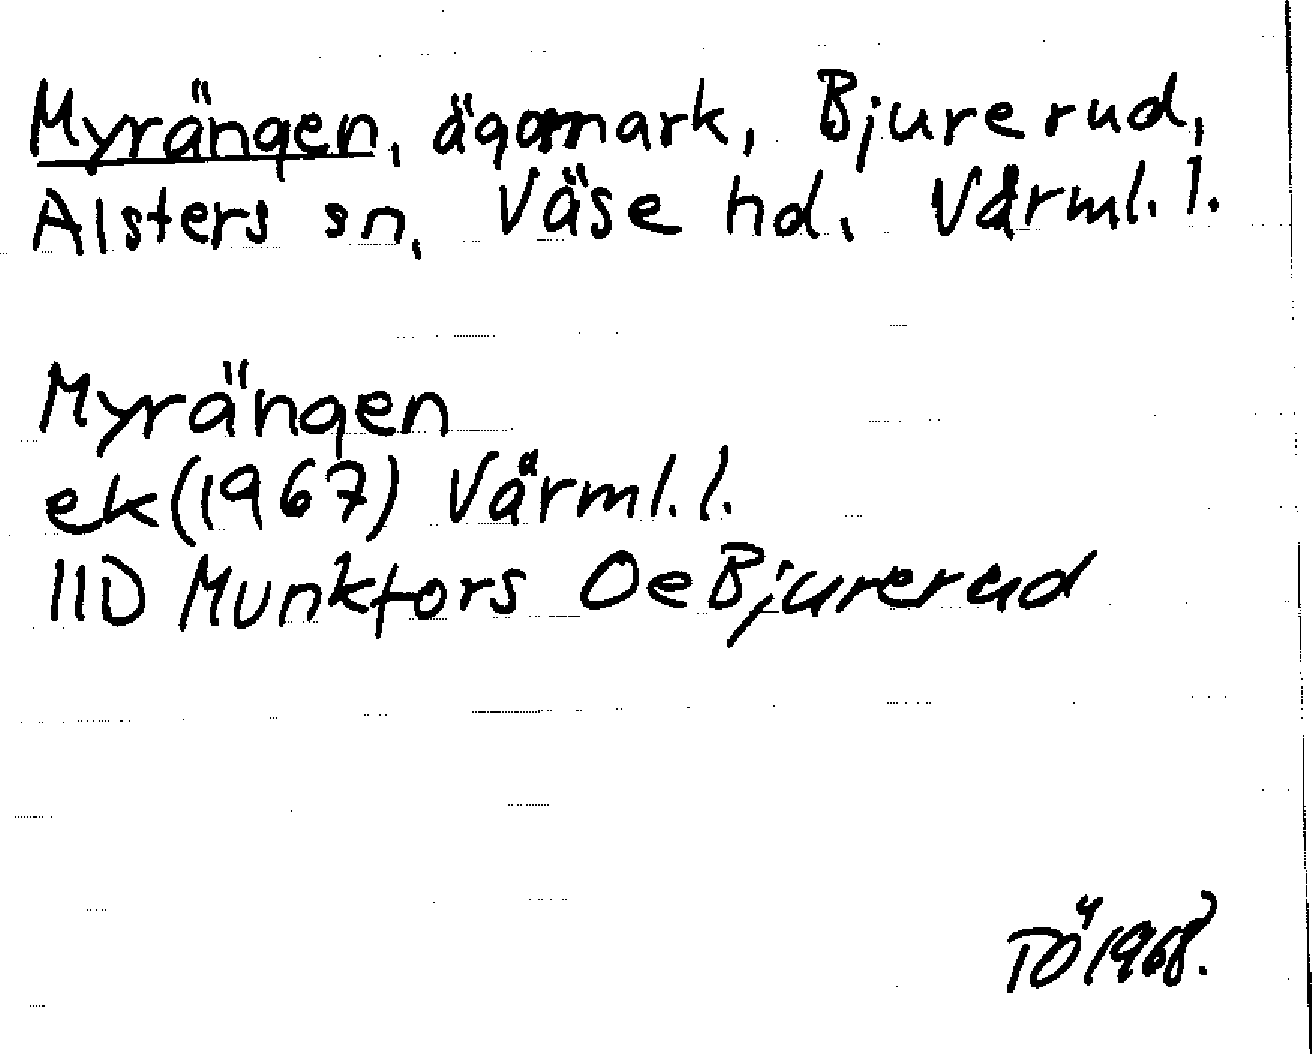 Myrängen, ägomark, Bjurerud,
Alsters sn, Väse hd, Värml. l.
Myrängen
ek(1967) Värml. l.
11D Munkfors Oe Bjurerud
TÖ 1968.